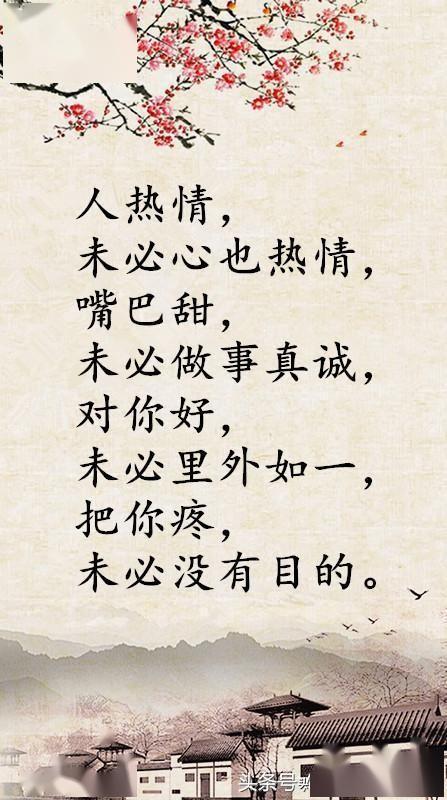 人热情，
未必心也热情，
嘴巴甜，
未必做事真诚，
对你好，
未必里外如一，
把你疼，
未必没有目的。
头条号